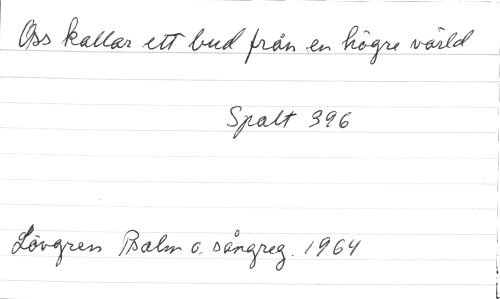 Oss kallar ett bud från en högre värld
Spalt 396
Lövgren Psalm o. sångreg. 1964